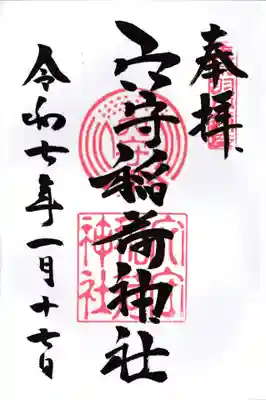 奉拝
穴守稲荷神社
令和七年一月十七日
穴守
稲荷
神社